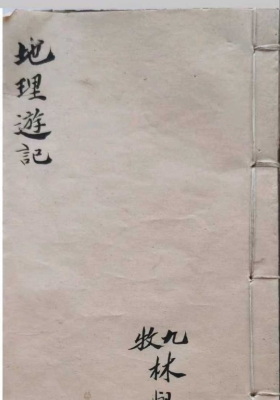 地理遊記
九林
牧